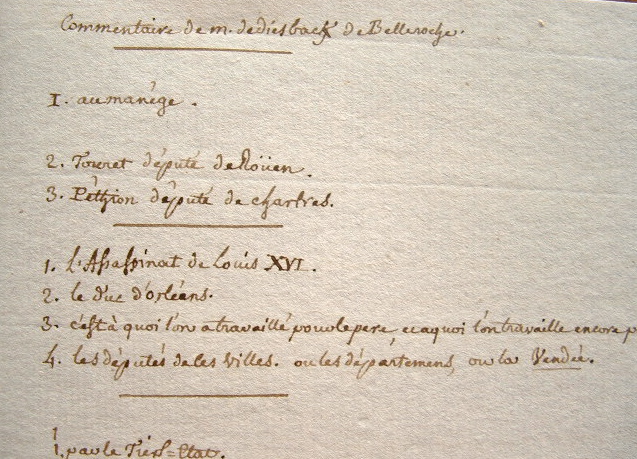 Commentaire de m. dediesback de Belleroche.
1. aumanége.
2. Touret député de Roüen.
3. Péthion député de chartres.
1. L'Assassinat de Louis XVI.
2. le duc d'orléans.
3. c'est à quoi l'on a travaillé pour le pere, et a quoi l'on travaille encore p
4. les députés de les villes. ou les départemens, ou la Vendée.
1
1. par le Tiers=Etat.